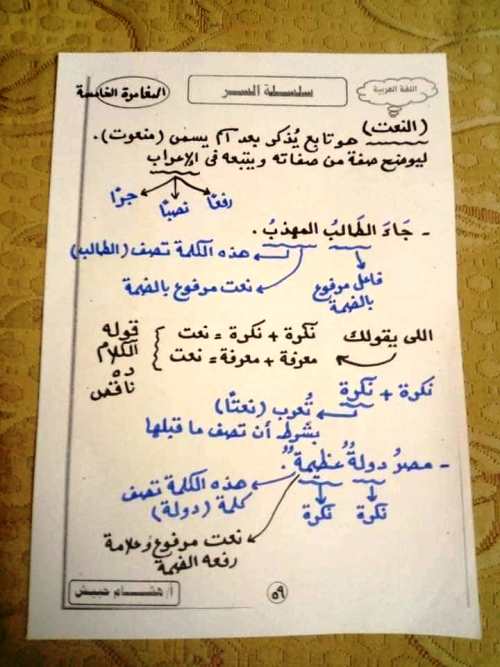 اللغة العربية
سلسلة السر
المغامرة الخامسة
(النعت) هو تابع يُذكر بعد اسم يسمى (منعوت).
ليوضح صفة من صفاته ويتبعه فى الإعراب
رفعًا نصبًا جرًا
- جَاءَ الطَالبُ المهذبُ.
هذه الكلمة تصف (الطالب)
فاعل مرفوع بالضمة
نعت مرفوع بالضمة
اللى يقولك
نكرة + نكرة = نعت
معرفة + معرفة = نعت
قوله
الكلام
ده
ناقص
نكرة + نكرة
تُعرب (نعتًا)
بشرط أن تصف ما قبلها
- مصرُ دولةٌ عظيمةٌ.
نكرة نكرة
هذه الكلمة تصف
كلمة (دولة)
نعت مرفوع وعلامة
رفعه الضمة
٥٩
أ/ هشام حبيش